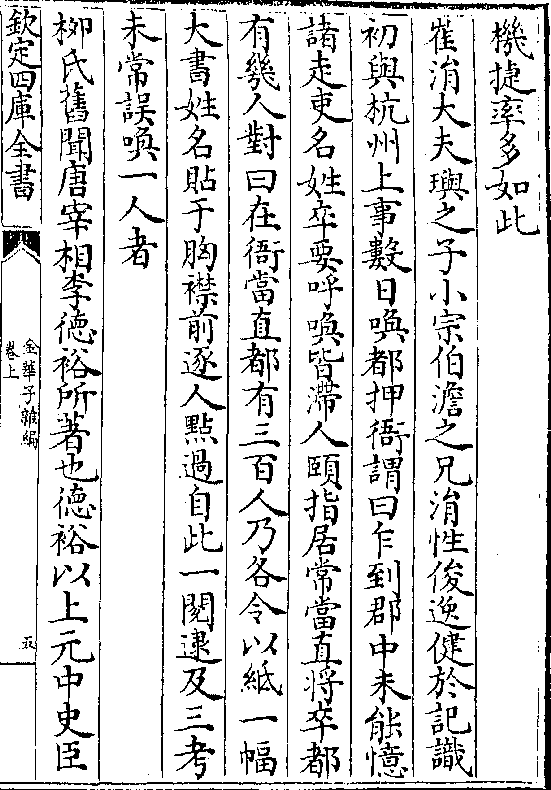 機捷率多如此
崔涓大夫璵之子小宗伯澹之兄涓性俊逸健於記識
初與杭州上事數日喚都押衙謂曰乍到郡中未能憶
諸走吏名姓卒要呼喚皆滯人頤指居常當直將卒都
有幾人對曰在衙當直都有三百人乃各令以紙一幅
大書姓名貼于胸襟前逐人點過自此一閱逮及三考
未常誤喚一人者
柳氏舊聞唐宰相李德裕所著也德裕以上元中史臣
欽定四庫全書
金華子雜編
卷上
五